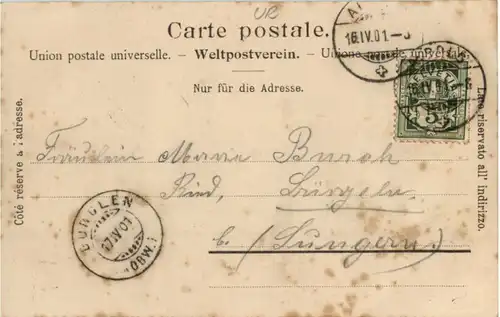 UR
Carte postale.
Union postale universelle. – Weltpostverein. – Unione postale universale.
Nur für die Adresse.
Côté réservé à l'adresse.
Lato riservato all' indirizzo.
16.IV.01.-
HELVETIA
5
Fräulein Marie Burch
Ried, Bürgeln
b. (Lungern)
BÜRGLEN
17.IV.01
(OBW.)